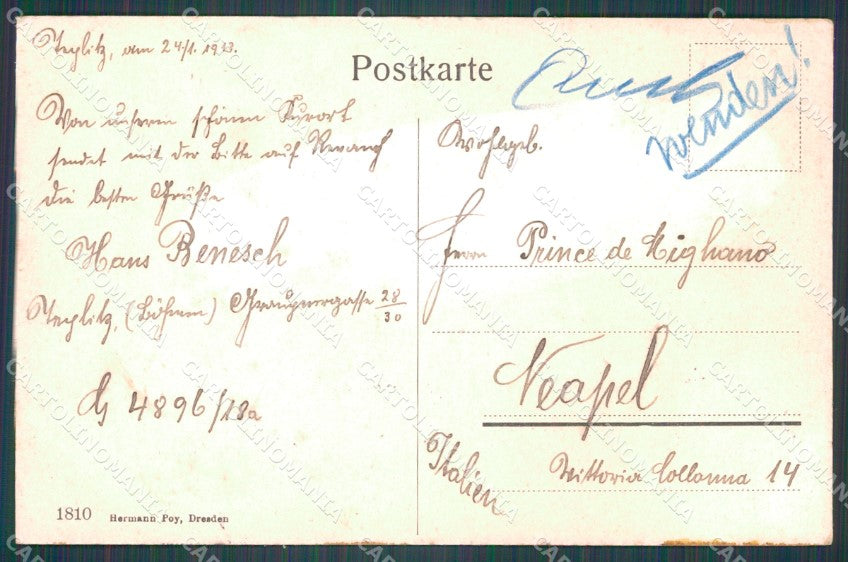 Teplitz, am 24/1. 1913.
Von unserem schönen Kurort
sendet mit der Bitte auf Revanch
die besten Grüße
Hans Benesch
Teplitz, (Böhmen) Graupnergasse 28/30
4896/28a
1810 Hermann Poy, Dresden
Postkarte
wenden!
Wohlgeb.
Herrn Prince de Mighano
Neapel
Italien
Vittoria Collonna 14
CARTOLINOMANIA